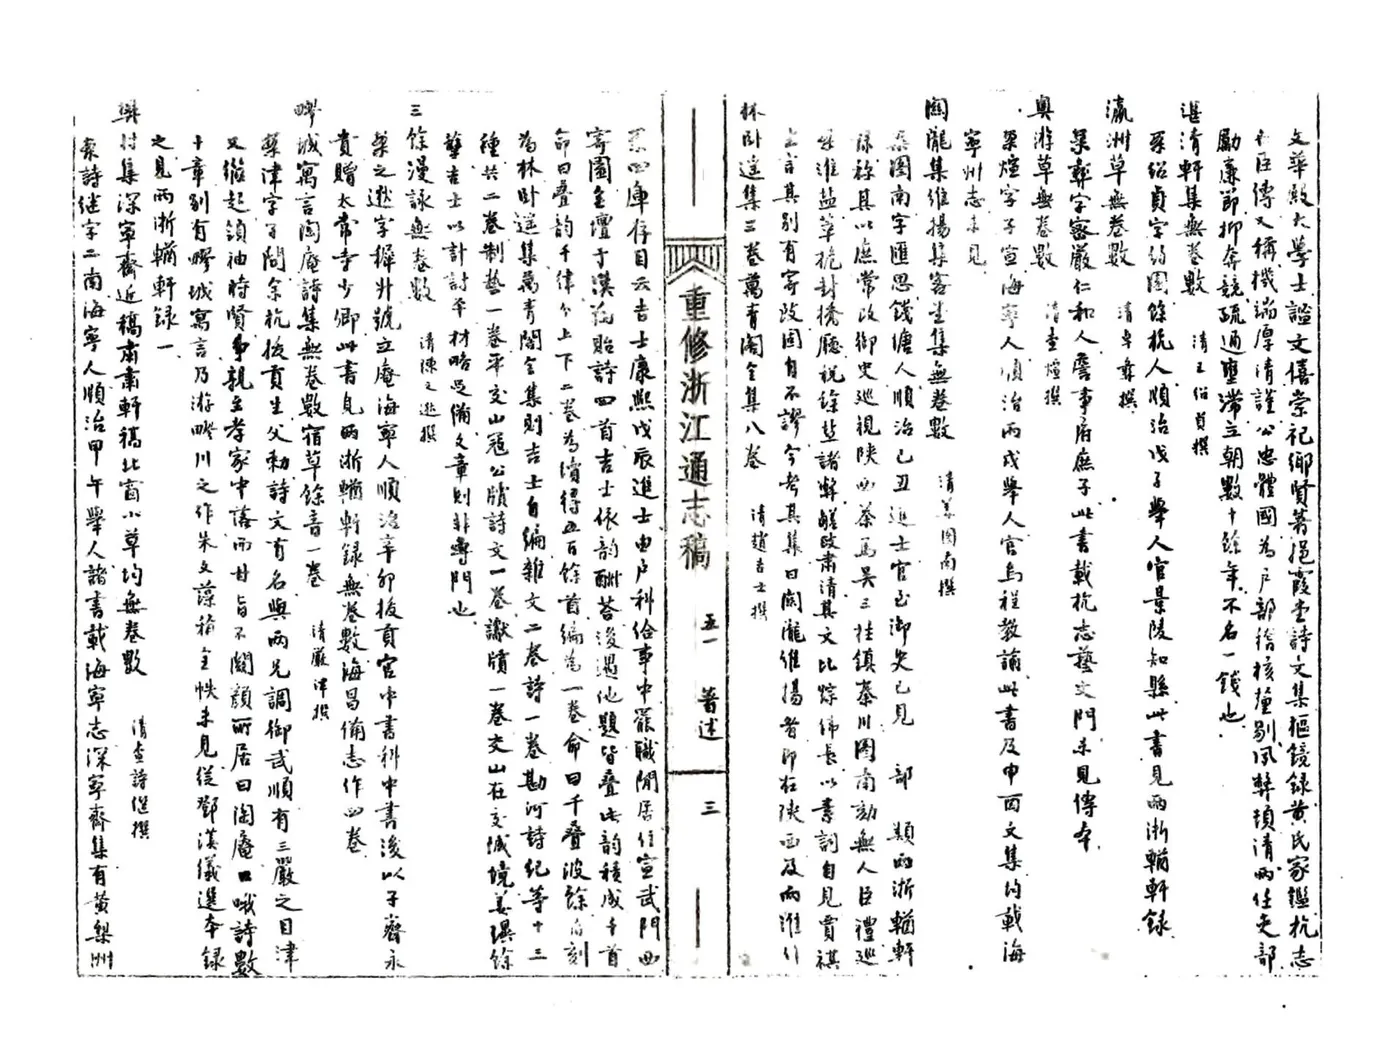 文華殿大學士謚文僖崇祀鄉賢著挹霞堂詩文集樞鏡錄黃氏家鑑杭志
臣傳又稱機端厚清謹公忠體國為户部稽核釐剔風弊頓清兩任吏部
勵廉節抑奔競疏通壅滯立朝數十餘年不名一錢也
湛清軒集無卷數 清王伯貞撰
字約園餘杭人順治戊子舉人官景陵知縣此書見兩浙輶軒録
瀛洲草無卷數 清卓彝撰
彝字密嚴仁和人詹事府庶子此書載杭志藝文門未見傳本
奧游草無卷數 清查煊撰
煊字子宣海寧人順治丙戌舉人官烏程教諭此書及申酉文集均載海
寧州志未見
關隴集維揚集客坐集無卷數 清姜圖南撰
圖南字匯思錢塘人順治己丑進士官至御史已見 部 類兩浙輶軒
録稱其以庶常改御史巡視陝西茶馬吳三桂鎮秦川圖南劾無人臣禮巡
淮鹽革抗封橋廳税除鹽諸弊醝政肅清其文比踪佛長以書詞自見賈祺
言其別有寄政園自不謬今考其集曰關隴維揚者即在陝西及兩淮
林卧遥集三卷萬青閣全集八卷 清趙吉士撰
重修浙江通志稿 五一 著述 三
四庫存目云吉士康熙戊辰進士由户科給事中罷職閒居住宣武門西
寄園金壇于漢貽詩四首吉士依韵酬答後遇他題皆疊此韵積成千首
命曰疊韵千律分上下二卷為續得五百餘首編為一卷命曰千疊波餘刻
為林卧遥集萬青閣全集則吉士自編雜文二卷詩一卷勘河詩紀等十三
種共二卷制藝一卷平交山寇公牘詩文一卷讞牘一卷交山在交城境姜瓖餘
孽吉士以計討平材略足備文章則非專門也
三餘漫詠無卷數 清陳之遴撰
之遴字穉升號立庵海寧人順治辛卯拔貢官中書科中書後以子齊永
貴贈太常寺少卿此書見兩浙輶軒録無卷數海昌備志作四卷
疁城寓言陶庵詩集無卷數宿草餘音一卷 清嚴津撰
津字子問余杭拔貢生父勅詩文有名與兩兄調御武順有三嚴之目津
又繼起領袖時賢爭親至孝家中落而甘旨不闕顏所居曰陶庵口哦詩數
十章別有疁城寓言乃游疁川之作朱文藻稱全帙未見從鄧漢儀選本録
之見兩浙輶軒録一
樊村集深寧齋近稿南肅軒稿北窗小草均無卷數 清查詩繼撰
詩繼字二南海寧人順治甲午舉人諸書載海寧志深寧齋集有黃梨洲